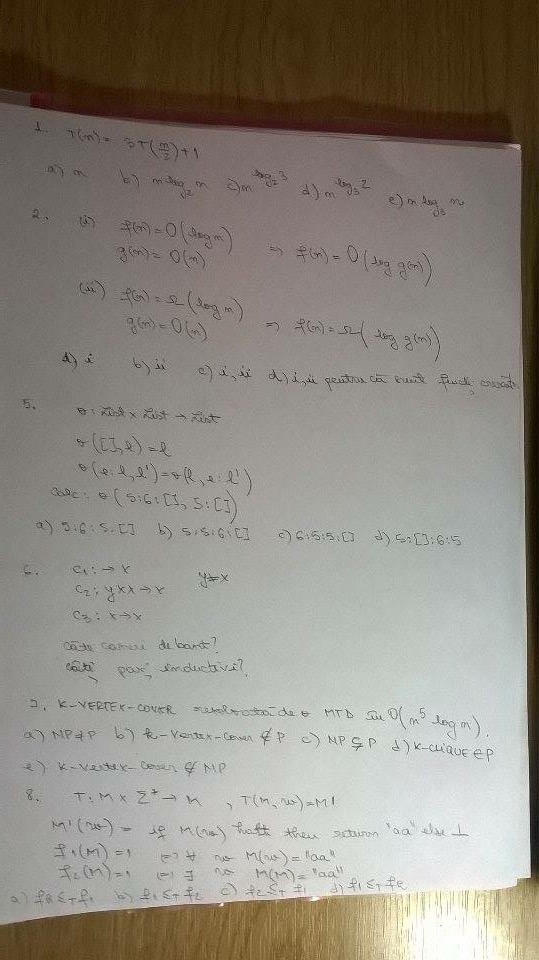 1. T(n) = 3T(n/2)+1
a) n b) n log₂ n c) n^log₂3 d) n^log₃2 e) n log₃ n
2. (i) f(n) = O(log n)
g(n) = O(n) => f(n) = O(log g(n))
(ii) f(n) = Ω(log n)
g(n) = O(n) => f(n) = Ω(log g(n))
a) i b) ii c) i, ii d) i, ii pentru că sunt
5. θ: List x List → List
θ([], l) = l
θ(e:l, l') = θ(l, e:l')
calc: θ(5:6:[], 5:[])
a) 5:6:5:[] b) 5:5:6:[] c) 6:5:5:[] d) 5:[]:6:5
6. C₁: → x y≠x
C₂: y x x → x
C₃: x → x
câte cazuri de bază?
câți pași inductivi?
7. K-VERTEX-COVER rezolvată de o MTD în O(n⁵ log n).
a) NP≠P b) k-Vertex-Cover ∉ P c) NP ⊊ P d) K-CLIQUE ∈ P
e) K-Vertex-Cover ∉ NP
8. T: M x Σ* → M, T(M, w) = M'
M'(w) = if M(w) halt then return "aa" else ⊥
f₁(M) = 1 <=> ∀ w M(w) = "aa"
f₂(M) = 1 <=> ∃ w M(w) = "aa"
b) f₁ ≤T f₂ c) f₂ ≤T f₁